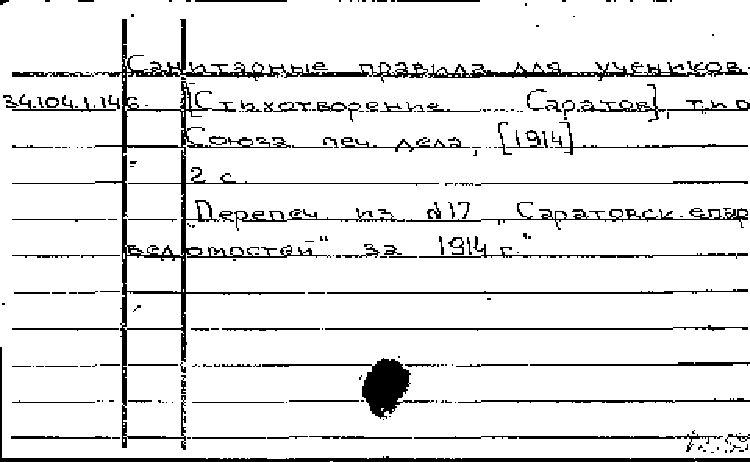 Санитарные правила для учеников.
34.104.1.146. [Стихотворение. Саратов], тип
Союза печ. дела, [1914]
2 с.
„Перепеч. из №17 „Саратовск. епар
ведомостей" за 1914 г."